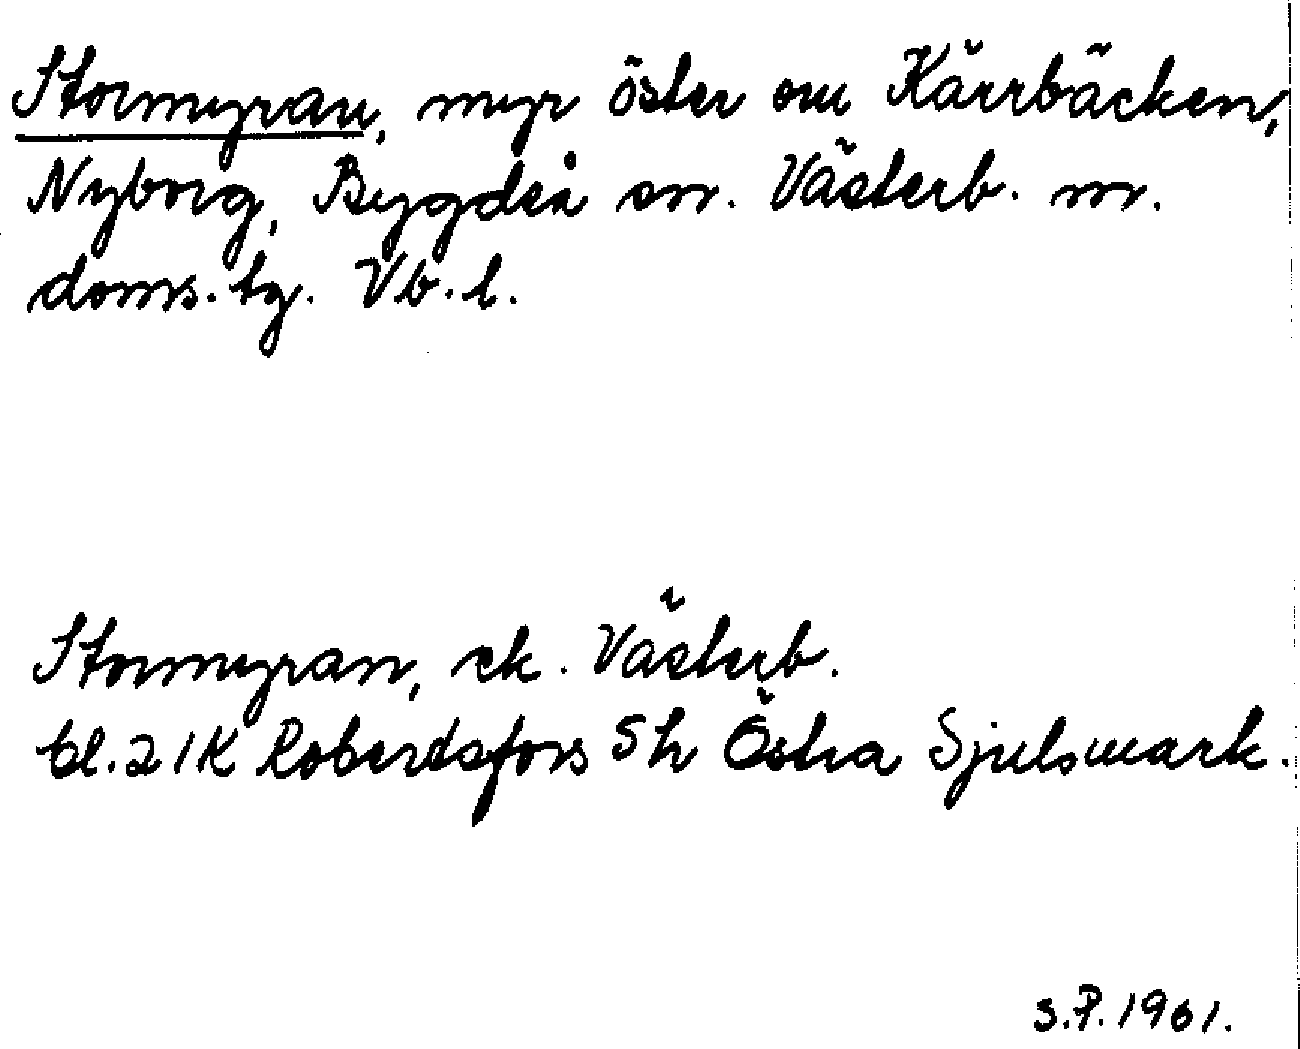 Stormyran, myr öster om Kärrbäcken,
Nyborg, Bygdeå sn. Västerb. n.
doms. tg. Vb. l.
Stormyran, ek. Västerb.
bl. 21K Robertsfors 5h Östra Sjulsmark.
S.P. 1961.